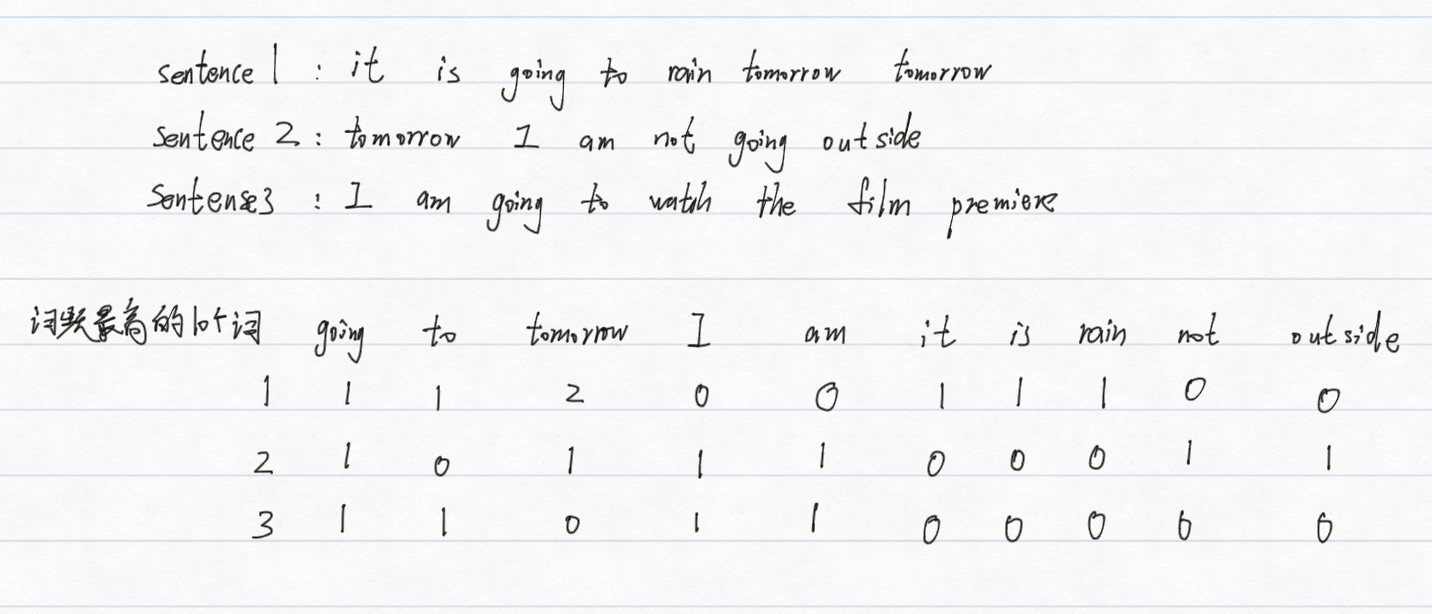 sentence 1 : it is going to rain tomorrow tomorrow
sentence 2 : tomorrow I am not going outside
sentense3 : I am going to watch the film premiere
词频最高的10个词 going to tomorrow I am it is rain not outside
1 1 1 2 0 0 1 1 1 0 0
2 1 0 1 1 1 0 0 0 1 1
3 1 1 0 1 1 0 0 0 0 0